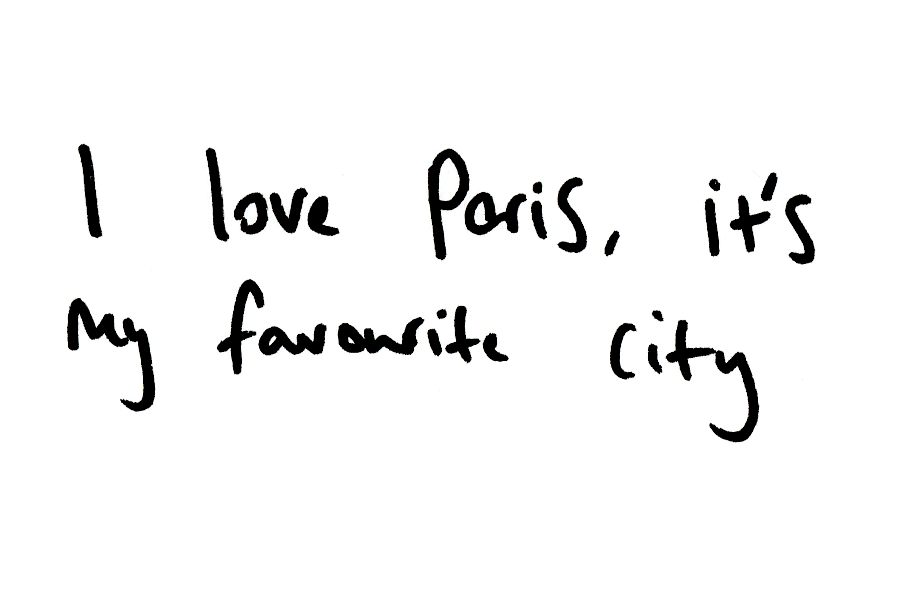 I love Paris, it's
my favourite city